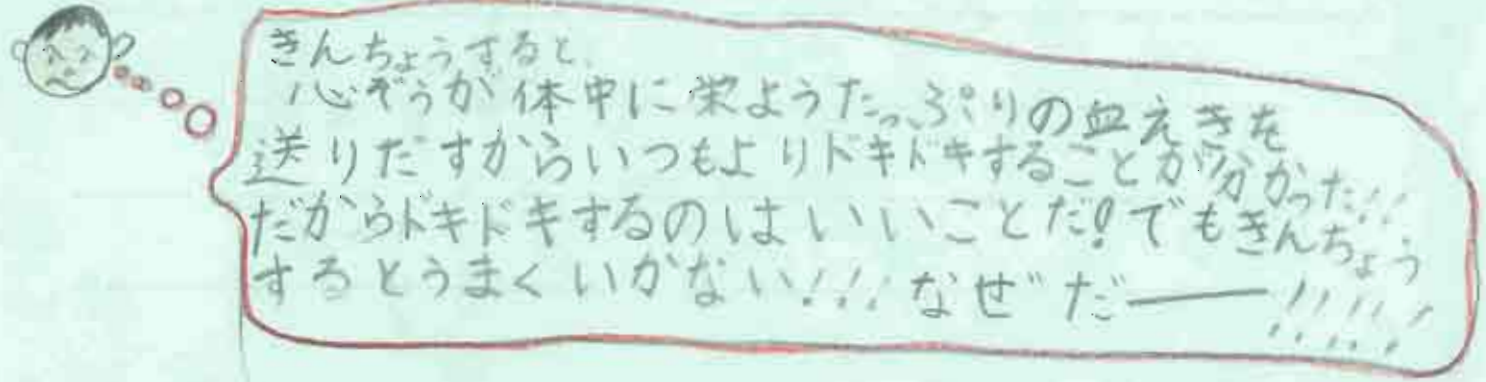 きんちょうすると、
心ぞうが体中に栄ようたっぷりの血えきを
送りだすからいつもよりドキドキすることが分かった!!
だからドキドキするのはいいことだ!でもきんちょう
するとうまくいかない!!!なぜだ――!!!!!!!!!